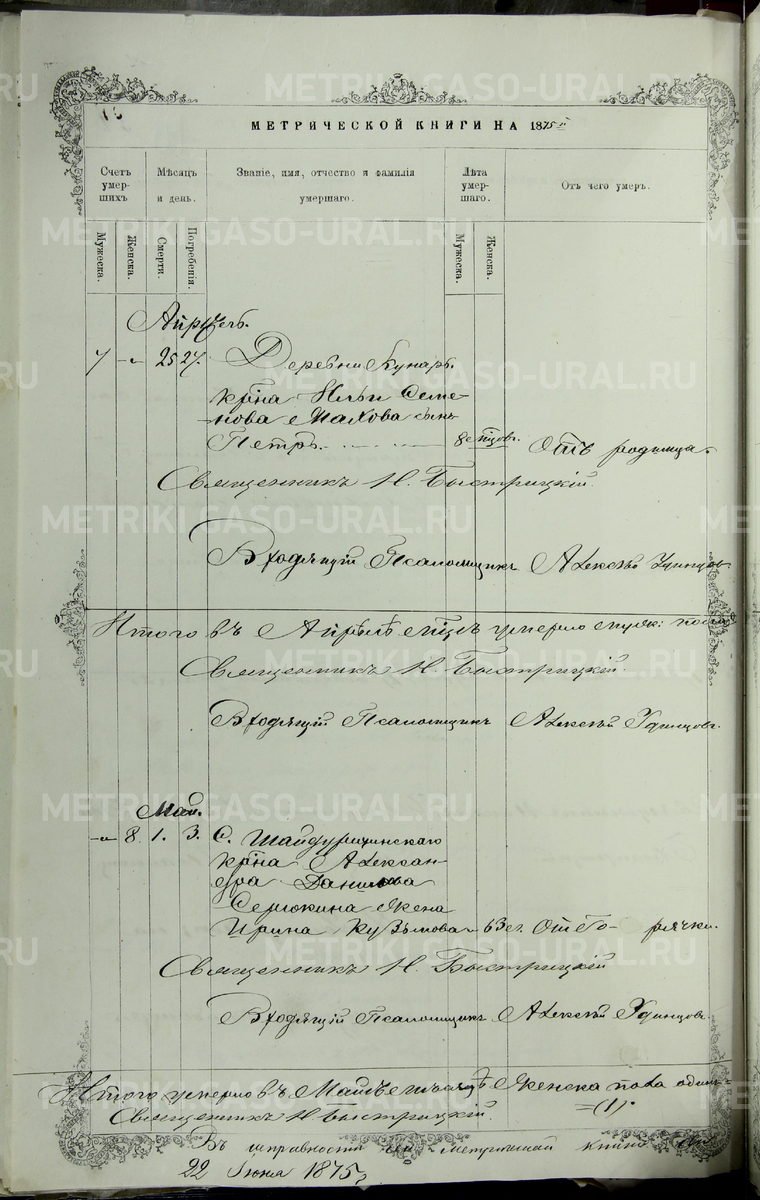 METRIKI.GASO-URAL.RU
МЕТРИЧЕСКОЙ КНИГИ НА 1875 й
Счетъ умершихъ
Мѣсяцъ и день.
Званіе, имя, отчество и фамилія умершаго.
Лѣта умершаго.
Отъ чего умеръ.
Мужеска.
Женска.
Смерти.
Погребенія.
Мужеска.
Женска.
7 25 27. Деревни Кунаръ
крᲅна Ильи Семе-
нова Махова сынъ
Петръ. 8 Отъ родимца.
Священникъ Н. Быстрицкій.
Входящій Псаломщикъ Алексѣй Удинцовъ
Итого въ Апрѣлѣ умерло
Священникъ Н. Быстрицкій.
Входящій Псаломщикъ Алексѣй Удинцовъ.
Май.
8. 1. 3. С. Шайдурихинскаго
крᲅна Алексан-
дра Данилова
жена
Ирина Кузьмова 63 Отъ го-рячки.
Священникъ Н. Быстрицкій
Входящій Псаломщикъ Алексѣй Удинцовъ.
Итого умерло въ Маѣ Женска пола одинъ
=(1).
Священникъ Н Быстрицкій.
Въ исправности сей метрической книги
22 Іюня 1875